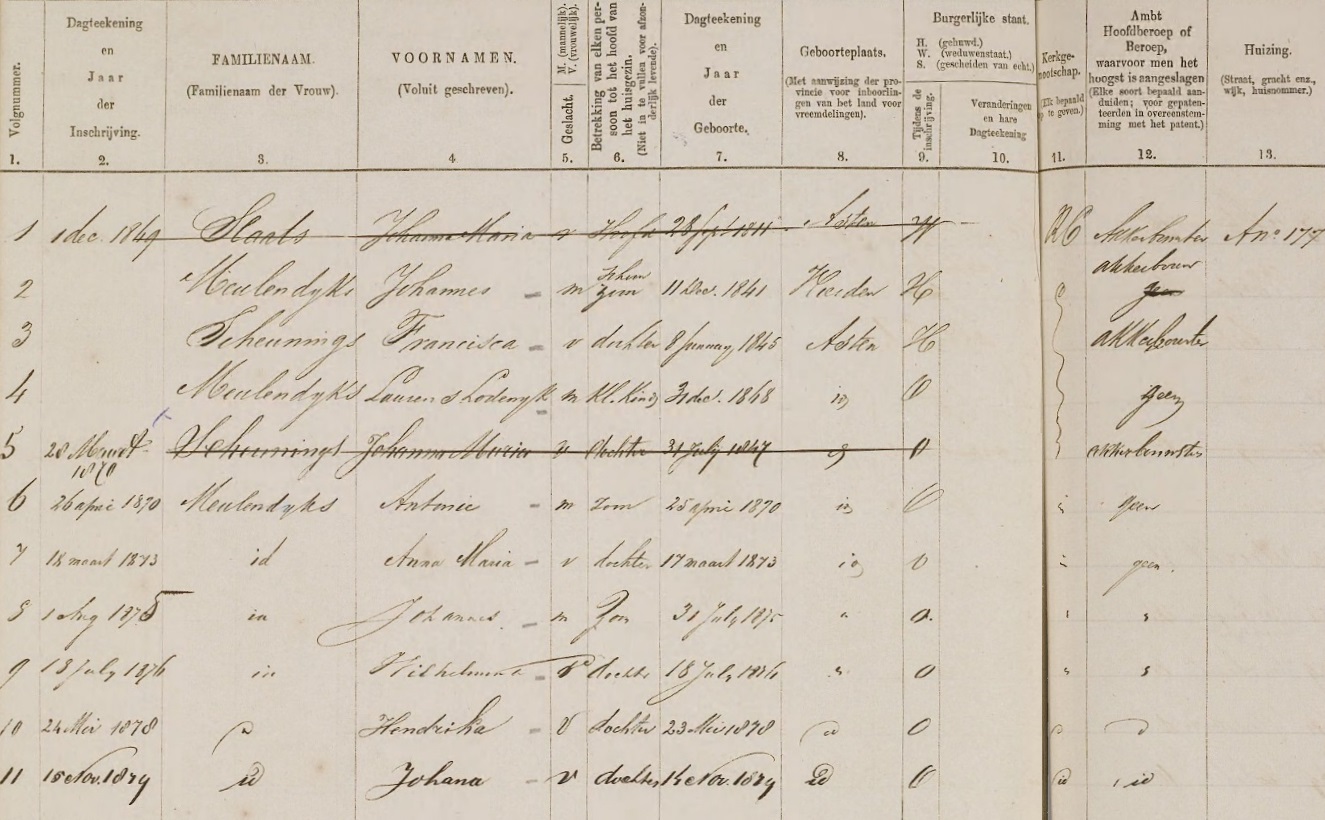 Volgnummer.
Dagteekening
en
Jaar
der
Inschrijving.
FAMILIENAAM.
(Familienaam der Vrouw).
VOORNAMEN.
(Voluit geschreven).
M. (mannelijk).
V. (vrouwelijk).
Geslacht.
Betrekking van elken per-
soon tot het hoofd van
het huisgezin.
(Niet in te vullen voor afzon-
derlijk levende).
Dagteekening
en
Jaar
der
Geboorte.
Geboorteplaats.
(Met aanwijzing der pro-
vincie voor inboorlin-
gen van het land voor
vreemdelingen).
Burgerlijke staat.
H. (gehuwd.)
W. (weduwenstaat.)
S. (gescheiden van echt.)
Tijdens de
inschrijving.
Veranderingen
en hare
Dagteekening
Kerkge-
nootschap.
(Elk bepaald
op te geven.)
Ambt
Hoofdberoep of
Beroep,
waarvoor men het
hoogst is aangeslagen
(Elke soort bepaald aan-
duiden; voor gepaten-
teerden in overeenstem-
ming met het patent.)
Huizing.
(Straat, gracht enz.,
wijk, huisnummer.)
1. 2. 3. 4 5. 6. 7. 8. 9. 10. 11. 12. 13.
1 1 dec. 1849 Slaats Johanna Maria v Hoofd 28 Sept 1811 Asten W RC Akkerbouwster An° 177
akkerbouw
2 Meulendyks Johannes m zoon 11 Dec. 1841 Heeden H geen
3 Scheunings Francisca v dochter 8 January 1845 Asten H akkerbouwster
4 Meulendyks Laurens Lodewyk m kl. Kind 31 dec. 1868 id O geen
5 28 Maart Scheunings Johanna Maria v dochter 31 July 1847 id O akkerbouwster
1870
6 26 april 1870 Meulendyks Antonie m zoon 25 april 1870 id O geen
7 18 maart 1873 id Anna Maria v dochter 17 maart 1873 id O geen.
8 1 Aug 1875 id Johannes m Zoon 31 July 1875 " O
9 18 July 1876 id Wilhelmina v dochter 18 July 1876 " O
10 24 Mei 1878 id Hendrika V dochter 23 Mei 1878 id O
11 15 Nov. 1879 id Johana v dochter 14 Nov. 1879 id O id id